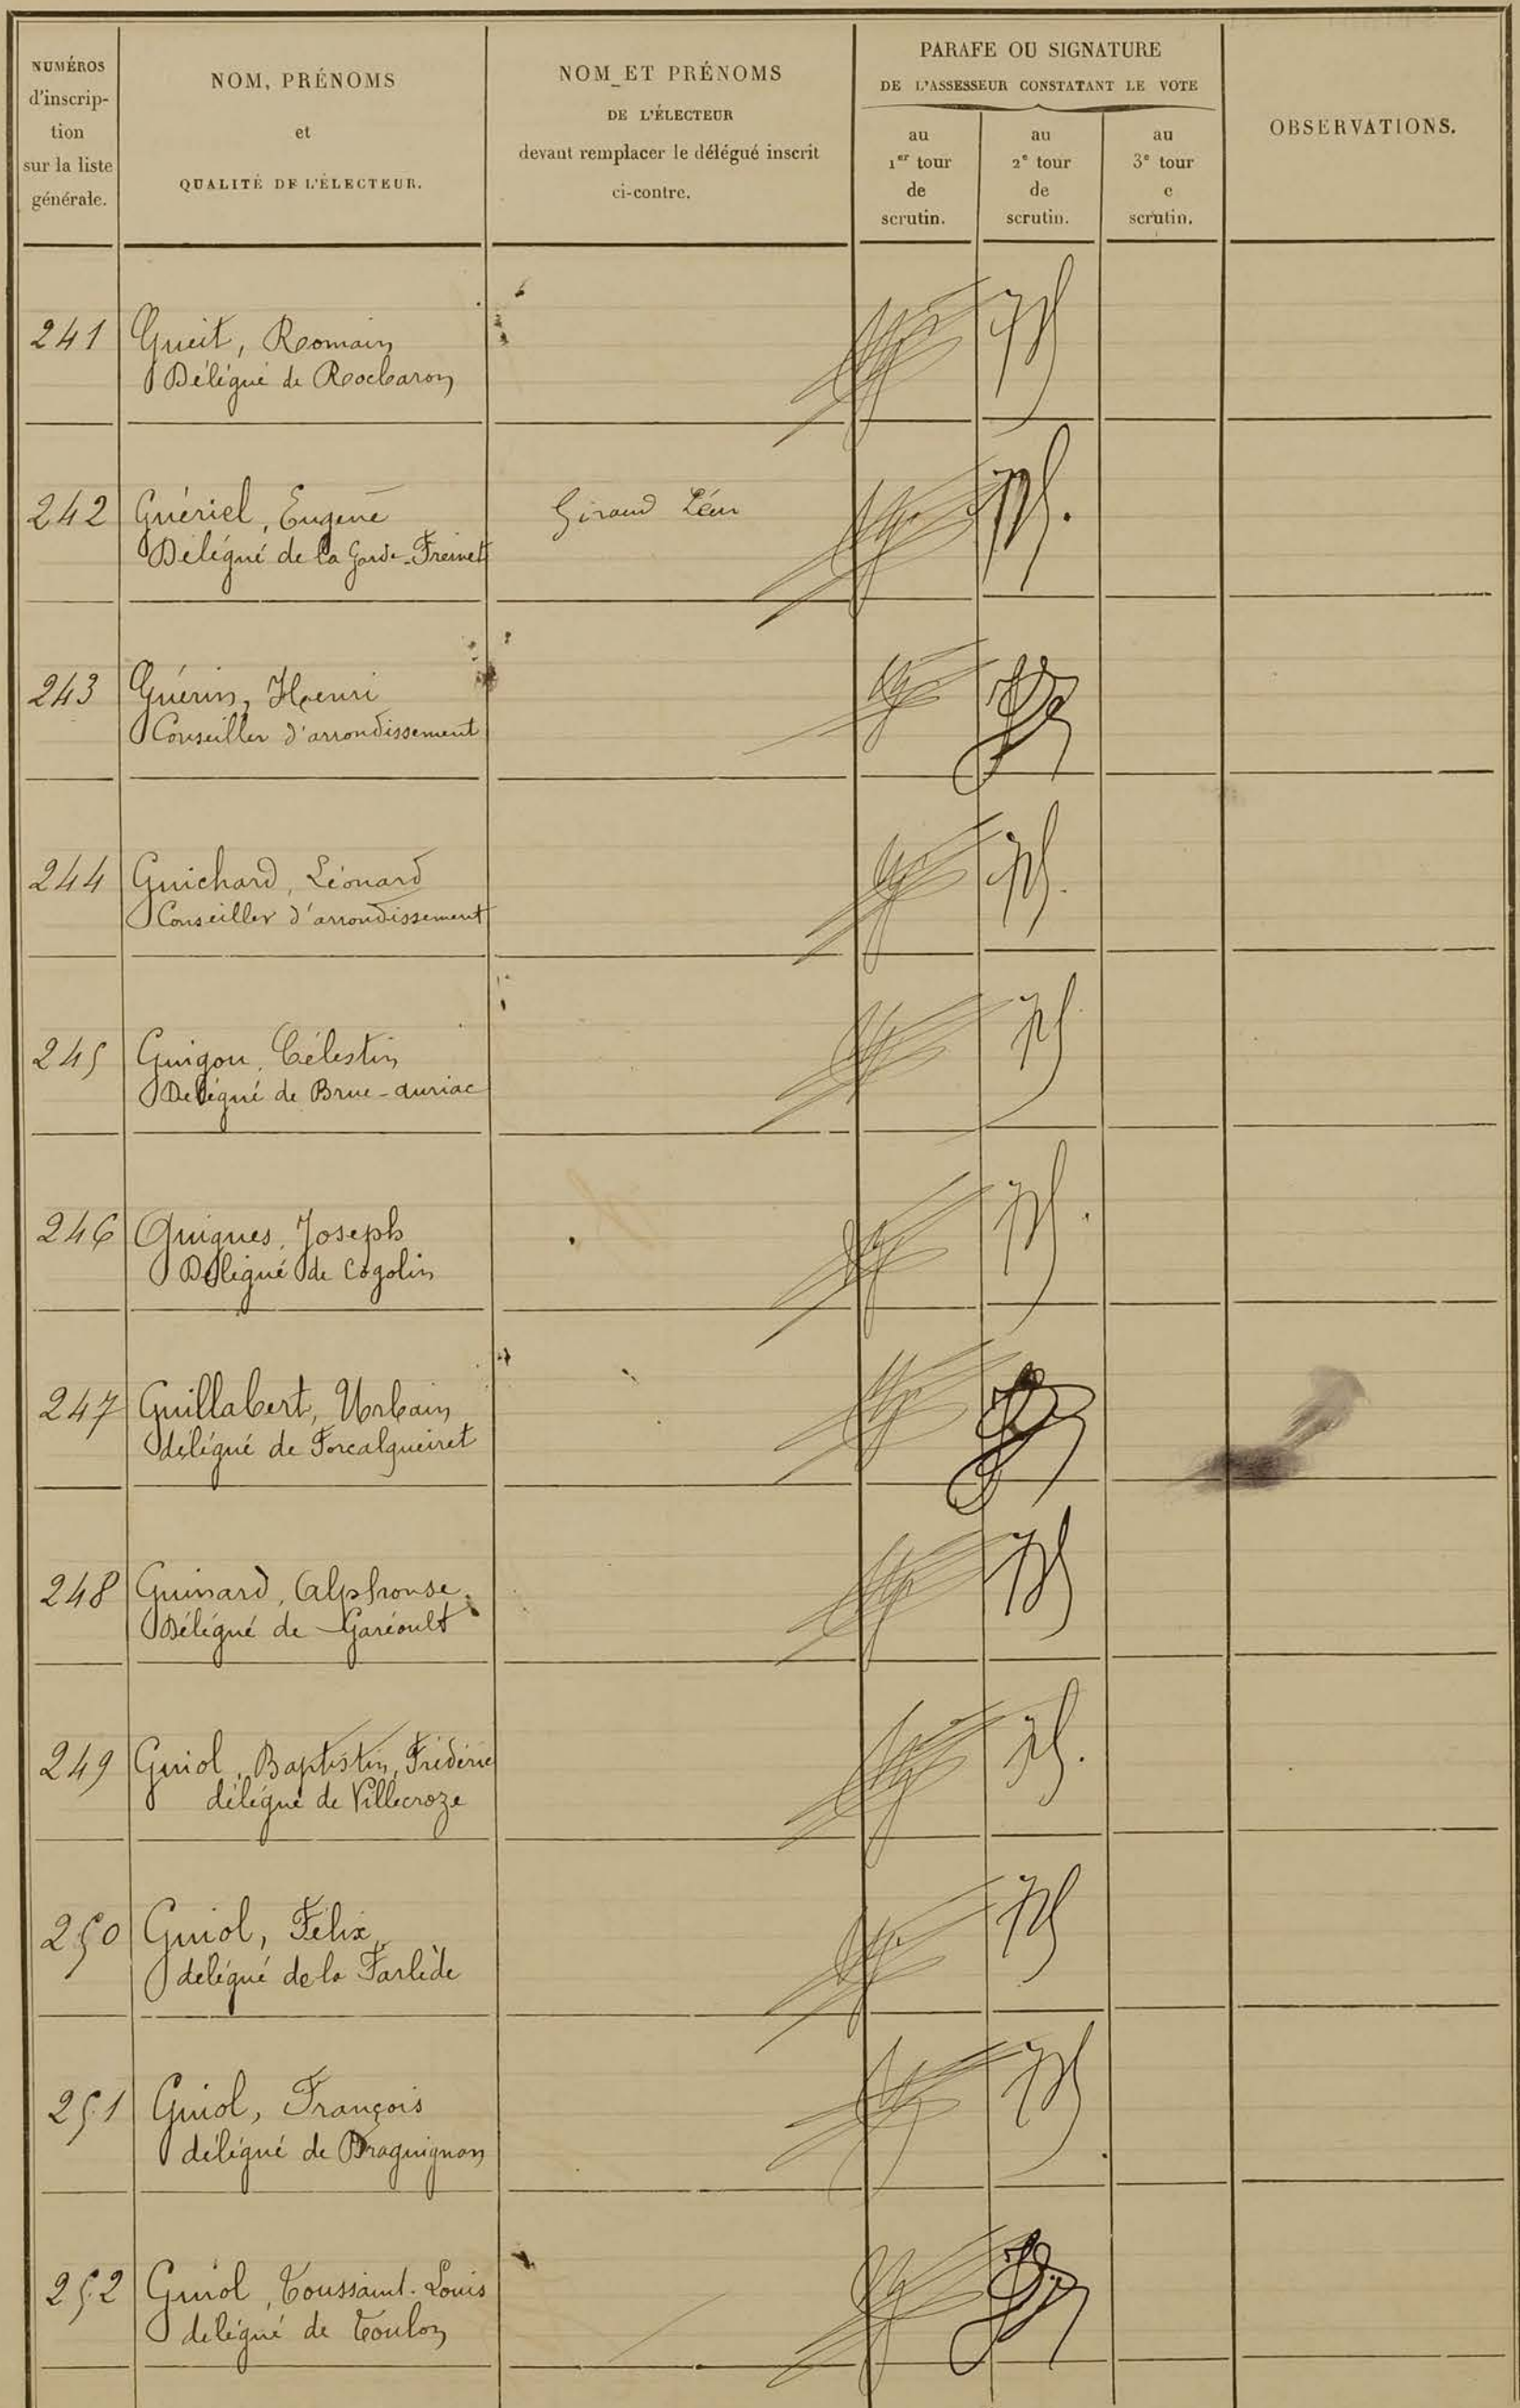 NUMÉROS
d'inscrip-
tion
sur la liste
générale.
NOM, PRÉNOMS
et
QUALITÉ DE L'ÉLECTEUR.
NOM ET PRÉNOMS
DE L'ÉLECTEUR
devant remplacer le délégué inscrit
ci-contre.
PARAFE OU SIGNATURE
DE L'ASSESSEUR CONSTATANT LE VOTE
au
1er tour
de
scrutin.
au
2e tour
de
scrutin.
au
3e tour
e
scrutin.
OBSERVATIONS.
241 Gueit, Romain
Délégué de Rocbaron
242 Guériel, Eugène Giraud Léon
Délégué de la Garde-Freinet
243 Guérin, Henri
Conseiller d'arrondissement
244 Guichard, Léonard
Conseiller d'arrondissement
245 Guigou, Célestin
Délégué de Brue-auriac
246 Guigues, Joseph
Délégué de Cogolin
247 Guillabert, Urbain
délégué de Forcalqueiret
248 Guinard, Alphonse
Délégué de Garéoult
249 Guiol, Baptistin, Frédéric
délégué de Villecroze
250 Guiol, Félix,
délégué de la Farlède
251 Guiol, François
délégué de Draguignan
252 Guiol, Toussaint-Louis
délégué de Toulon